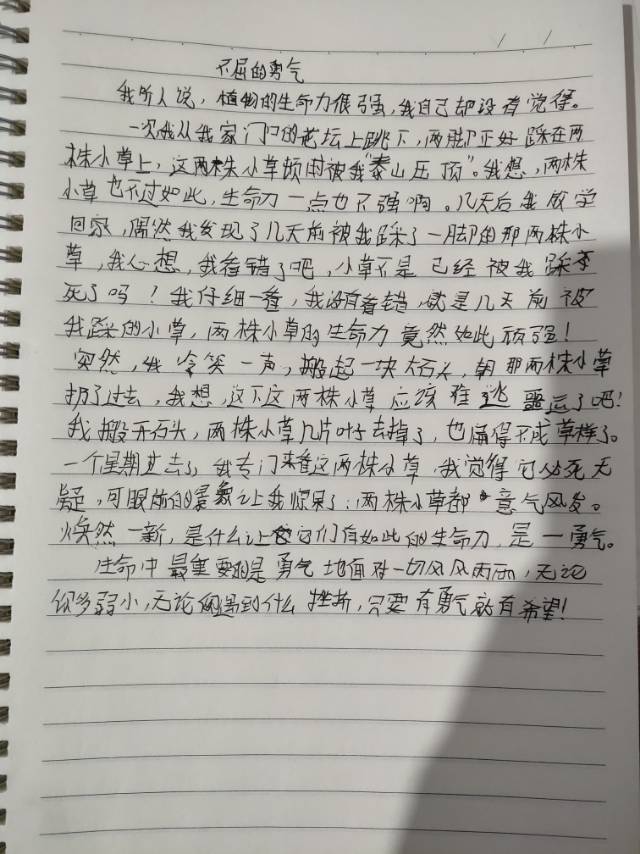 不屈的勇气
我听人说，植物的生命力很强，我自己却没有觉得。
一次我从我家门口的花坛上跳下，两脚正好踩在两
株小草上，这两株小草顿时被我"泰山压顶"。我想，两株
小草也不过如此，生命力一点也不强啊。几天后我放学
回家，偶然我发现了几天前被我踩了一脚的那两株小
草，我心想，我看错了吧，小草不是已经被我踩
死了吗！我仔细一看，我没有看错，就是几天前被
我踩的小草，两株小草的生命力竟然如此顽强！
突然，我冷笑一声，搬起一块大石头，朝那两株小草
扔了过去，我想，这下这两株小草应该难逃噩运了吧！
我搬开石头，两株小草几片叶子去掉了，也痛得不成草样了。
一个星期过去了，我专门来看这两株小草，我觉得它必死无
疑，可眼前的景象让我惊呆了：两株小草都意气风发。
焕然一新，是什么让它们有如此的生命力，是一勇气。
生命中最重要的是勇气地面对一切风风雨雨，无论
你多弱小，无论遇到什么挫折，只要有勇气就有希望！